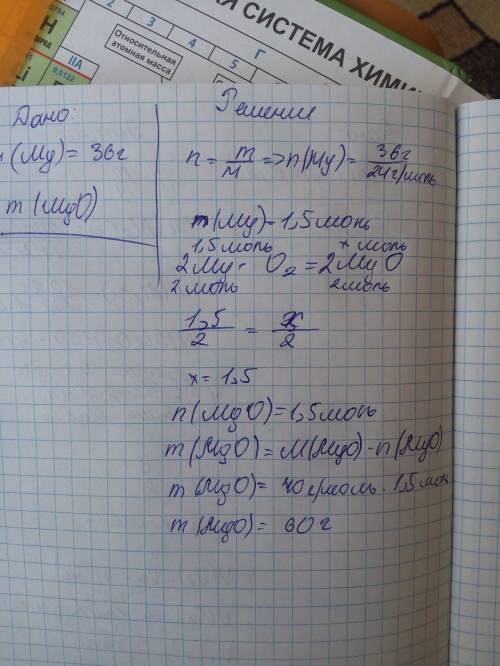 Я СИСТЕМА ХИМИ
2
3
4
5
Г
Относительная
атомная масса
Н
IIA
9,0122
Дано:
(Mg) = 36г
m(MgO)
Решение
n = m/M => n(Mg) = 36г/24г/моль
n(Mg) - 1,5 моль
1,5 моль x моль
2Mg + O2 = 2MgO
2 моль 2 моль
1,5/2 = x/2
x = 1,5
n(MgO) = 1,5 моль
m(MgO) = M(MgO) · n(MgO)
m(MgO) = 40 г/моль · 1,5 моль
m(MgO) = 60 г